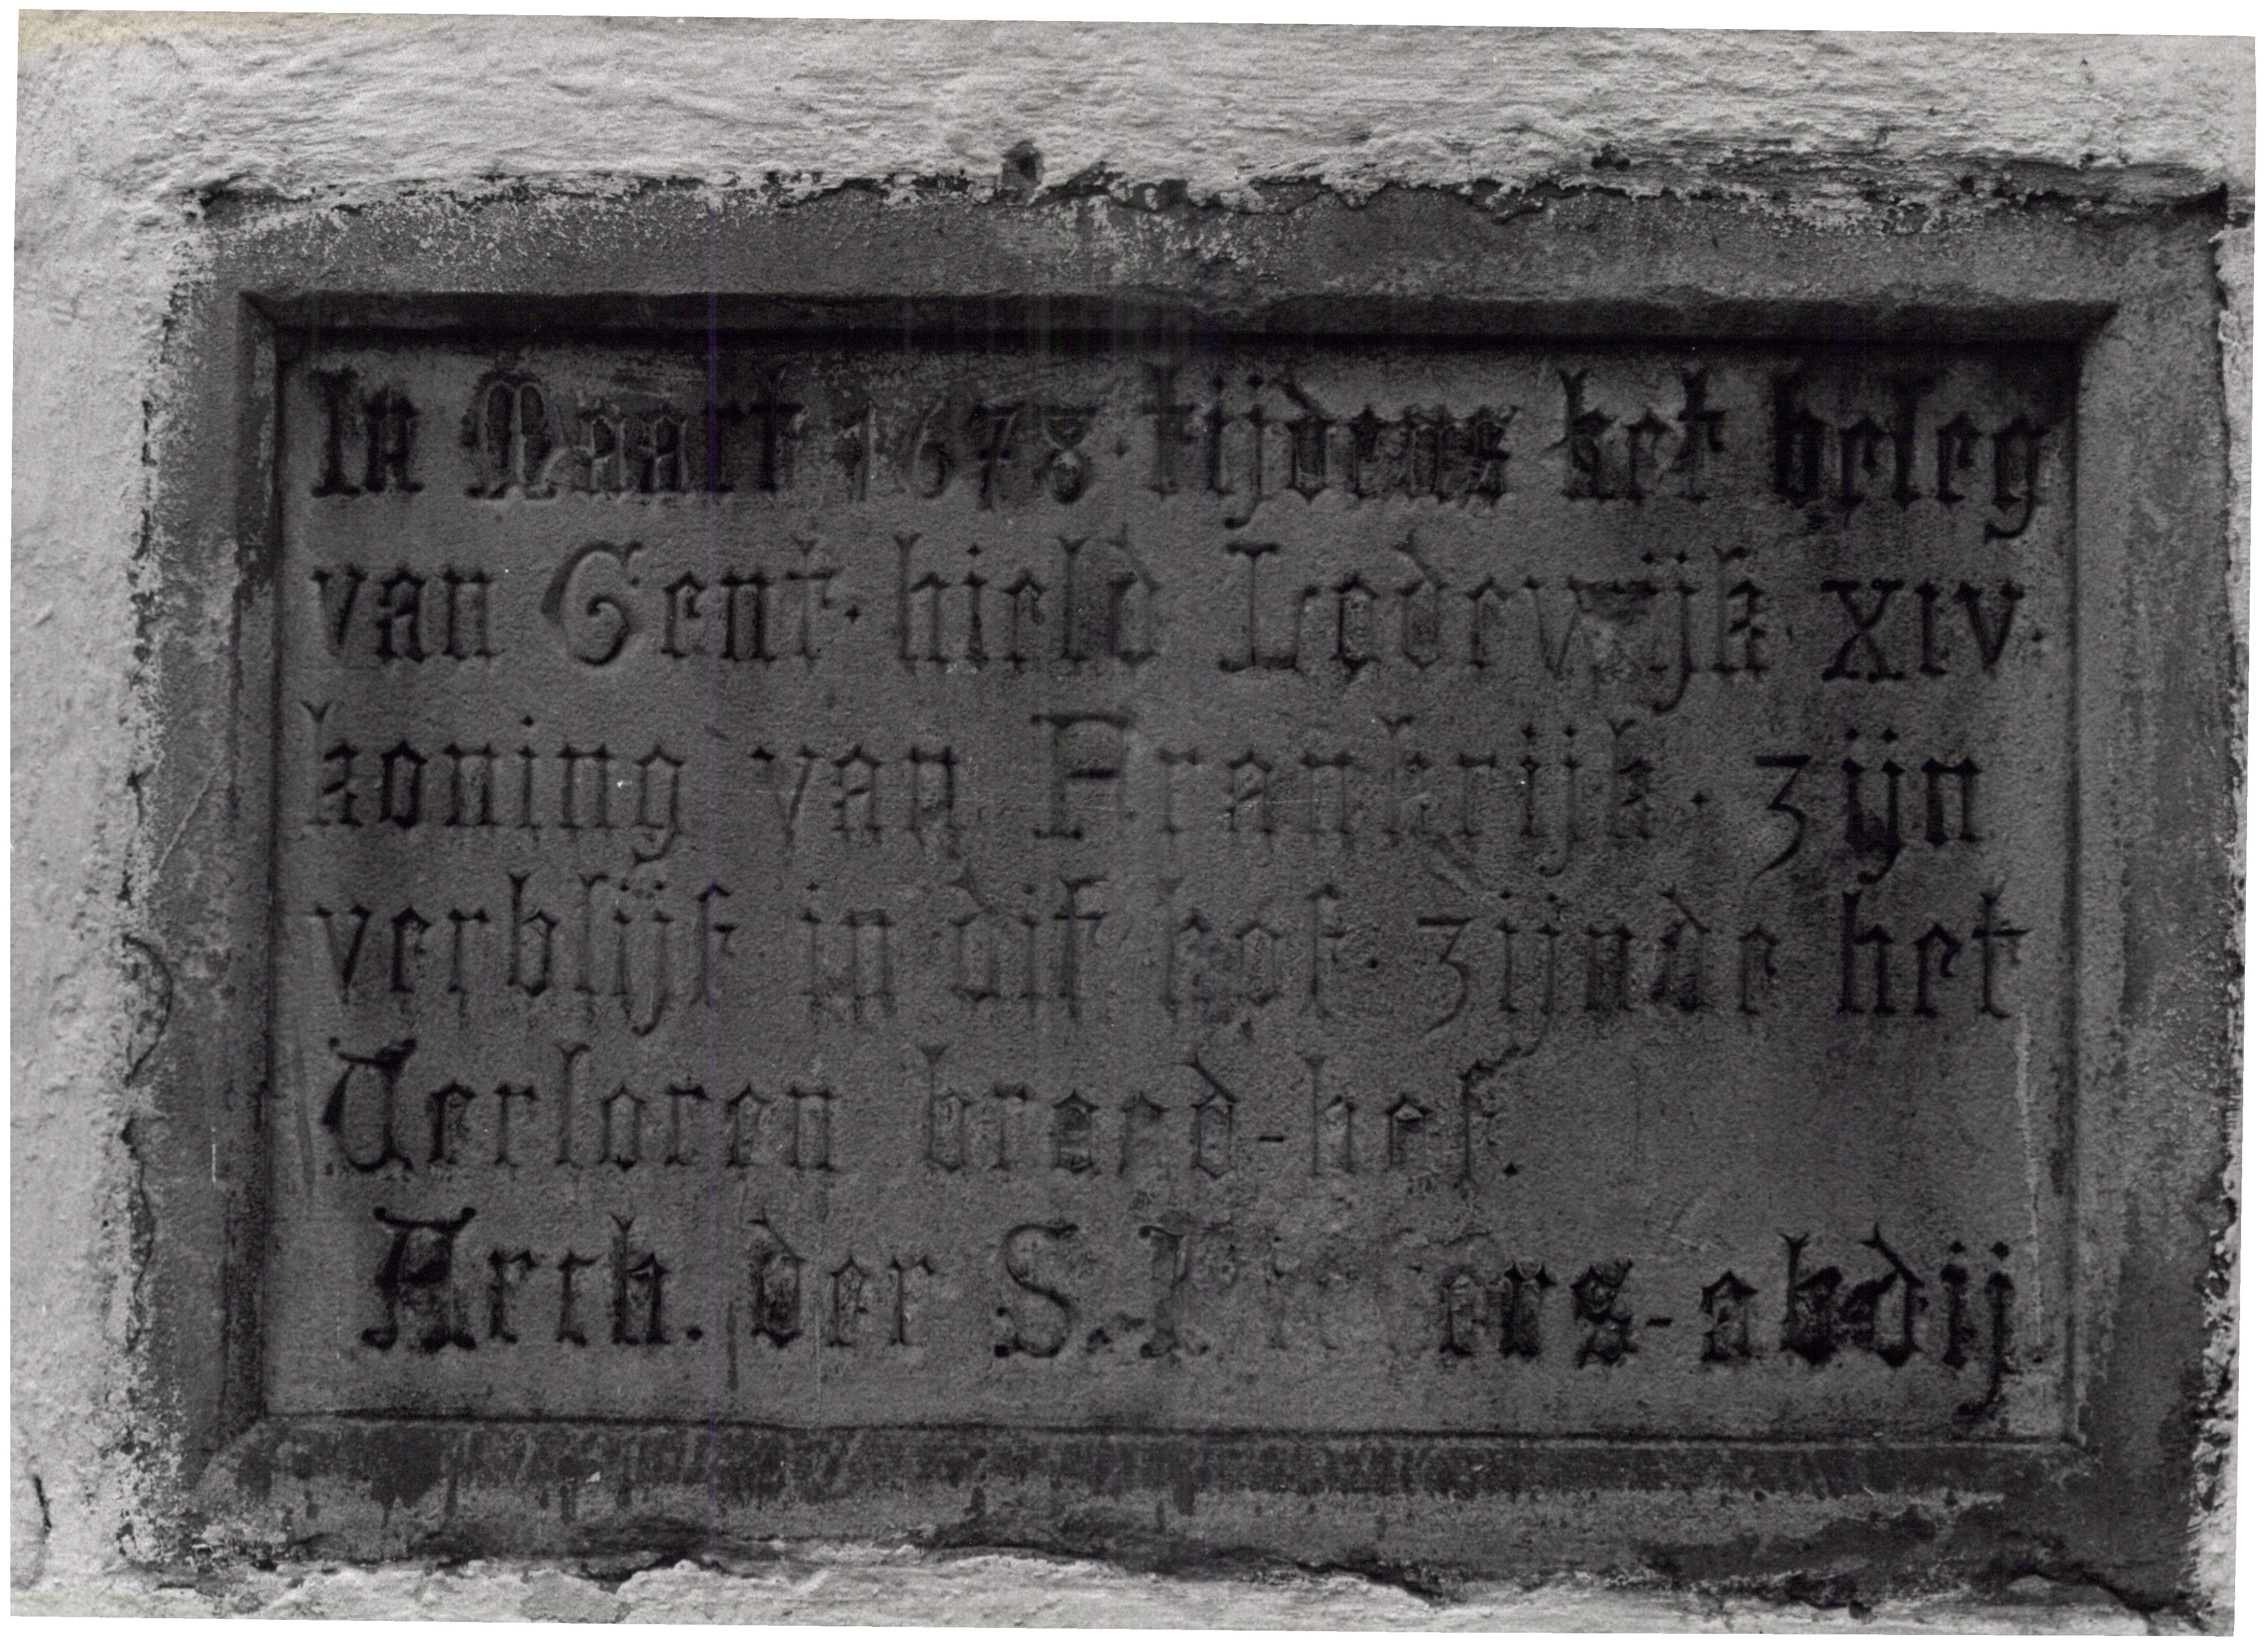 In Maart 1678 · tijdens het beleg
van Gent · hield Lodewijk XIV ·
koning van Frankrijk · zijn
verblijf in dit hof · zijnde het
Verloren breed-hof.
Arch. der S.-Pieters-abdij